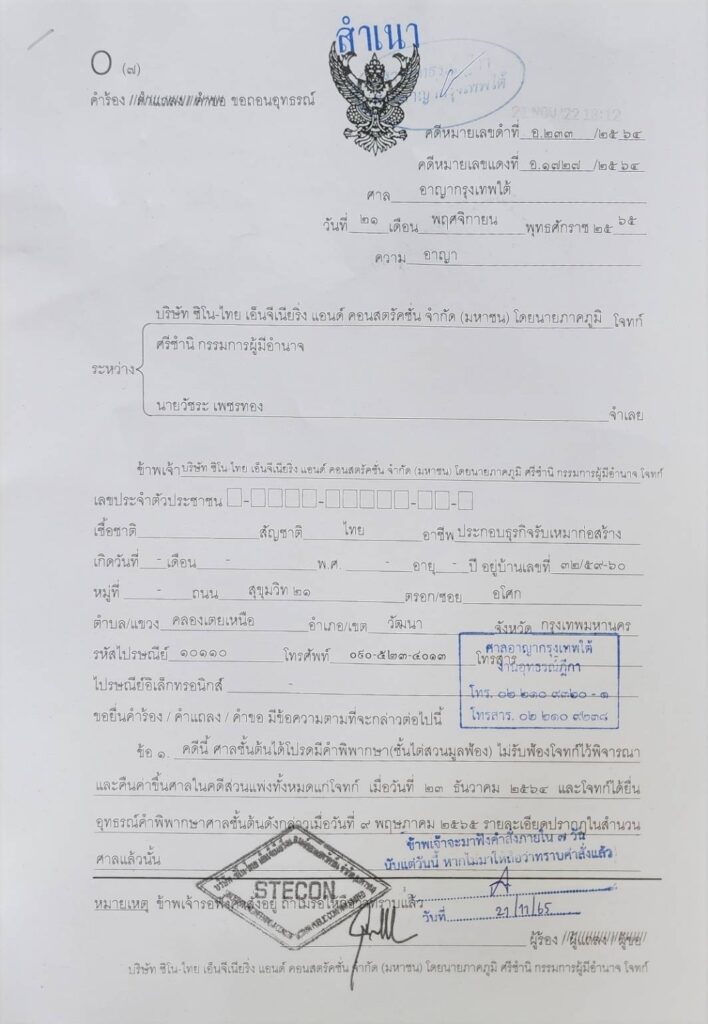 สำเนา
O (๗)
คำร้อง / คำแถลง / คำขอ ขอถอนอุทธรณ์
21 NOV '22 13:12
คดีหมายเลขดำที่ อ.๒๓๓ /๒๕๖๔
คดีหมายเลขแดงที่ อ.๑๗๒๗ /๒๕๖๔
ศาล อาญากรุงเทพใต้
วันที่ ๒๑ เดือน พฤศจิกายน พุทธศักราช ๒๕ ๖๕
ความ อาญา
บริษัท ซิโน-ไทย เอ็นจีเนียริ่ง แอนด์ คอนสตรัคชั่น จำกัด (มหาชน) โดยนายภาคภูมิ โจทก์
ศรีชำนิ กรรมการผู้มีอำนาจ
ระหว่าง
นายวัชระ เพชรทอง
จำเลย
ข้าพเจ้า บริษัท ซิโน ไทย เอ็นจีเนียริ่ง แอนด์ คอนสตรัคชั่น จำกัด (มหาชน) โดยนายภาคภูมิ ศรีชำนิ กรรมการผู้มีอำนาจ โจทก์
เลขประจำตัวประชาชน
เชื้อชาติ สัญชาติ ไทย อาชีพ ประกอบธุรกิจรับเหมาก่อสร้าง
เกิดวันที่ - เดือน - พ.ศ. - อายุ - ปี อยู่บ้านเลขที่ ๓๒/๕๙-๖๐
หมู่ที่ - ถนน สุขุมวิท ๒๑ ตรอก/ซอย อโศก
ตำบล/แขวง คลองเตยเหนือ อำเภอ/เขต วัฒนา จังหวัด กรุงเทพมหานคร
รหัสไปรษณีย์ ๑๐๑๑๐ โทรศัพท์ ๐๙๐-๕๒๓-๔๐๑๓ โทรสาร
ไปรษณีย์อิเล็กทรอนิกส์ -
ศาลอาญากรุงเทพใต้
งานอุทธรณ์ฎีกา
โทร. ๐๒ ๒๑๐ ๙๓๒๐ - ๑
โทรสาร. ๐๒ ๒๑๐ ๙๒๓๘
ขอยื่นคำร้อง / คำแถลง / คำขอ มีข้อความตามที่จะกล่าวต่อไปนี้
ข้อ ๑. คดีนี้ ศาลชั้นต้นได้โปรดมีคำพิพากษา(ชั้นไต่สวนมูลฟ้อง) ไม่รับฟ้องโจทก์ไว้พิจารณา
และคืนค่าขึ้นศาลในคดีส่วนแพ่งทั้งหมดแก่โจทก์ เมื่อวันที่ ๒๓ ธันวาคม ๒๕๖๔ และโจทก์ได้ยื่น
อุทธรณ์คำพิพากษาศาลชั้นต้นดังกล่าวเมื่อวันที่ ๙ พฤษภาคม ๒๕๖๕ รายละเอียดปรากฏในสำนวน
ศาลแล้วนั้น
ข้าพเจ้าจะมาฟังคำสั่งภายใน ๗ วัน
นับแต่วันนี้ หากไม่มาให้ถือว่าทราบคำสั่งแล้ว
STECON
หมายเหตุ ข้าพเจ้ารอฟังคำสั่งอยู่ ถ้าไม่รอให้ถือว่าทราบแล้ว
วันที่ 21/11/65
ผู้ร้อง / ผู้แถลง / ผู้ขอ
บริษัท ซิโน-ไทย เอ็นจีเนียริ่ง แอนด์ คอนสตรัคชั่น จำกัด (มหาชน) โดยนายภาคภูมิ ศรีชำนิ กรรมการผู้มีอำนาจ โจทก์